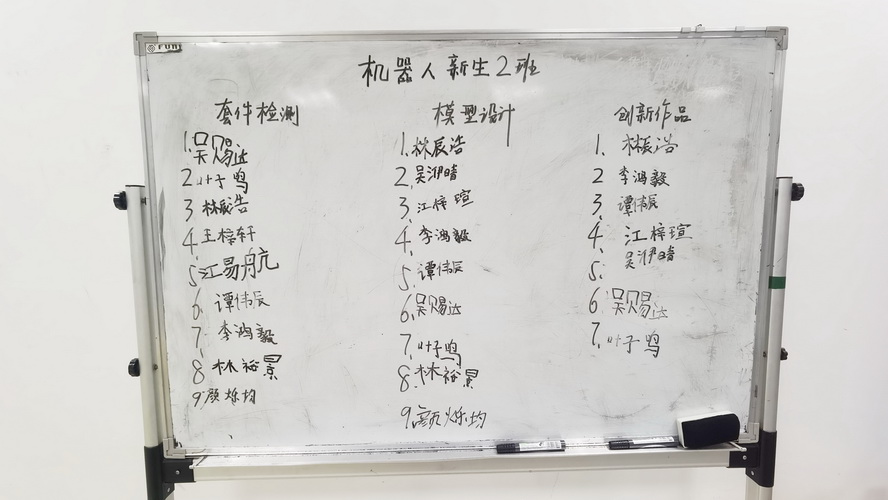 机器人新生2班
套件检测
1.吴赐达
2叶子鸣
3林辰浩
4.王梓轩
5江易航
6谭伟辰
7.李鸿毅
8林裕景
9颜烁均
模型设计
1.林辰浩
2.吴沪晴
3.江梓瑄
4.李鸿毅
5.谭伟辰
6.吴赐达
7.叶子鸣
8.林裕景
9.颜烁均
创新作品
1.林辰浩
2李鸿毅
3.谭伟辰
4.江梓瑄
5.吴沪晴
6吴赐达
7.叶子鸣